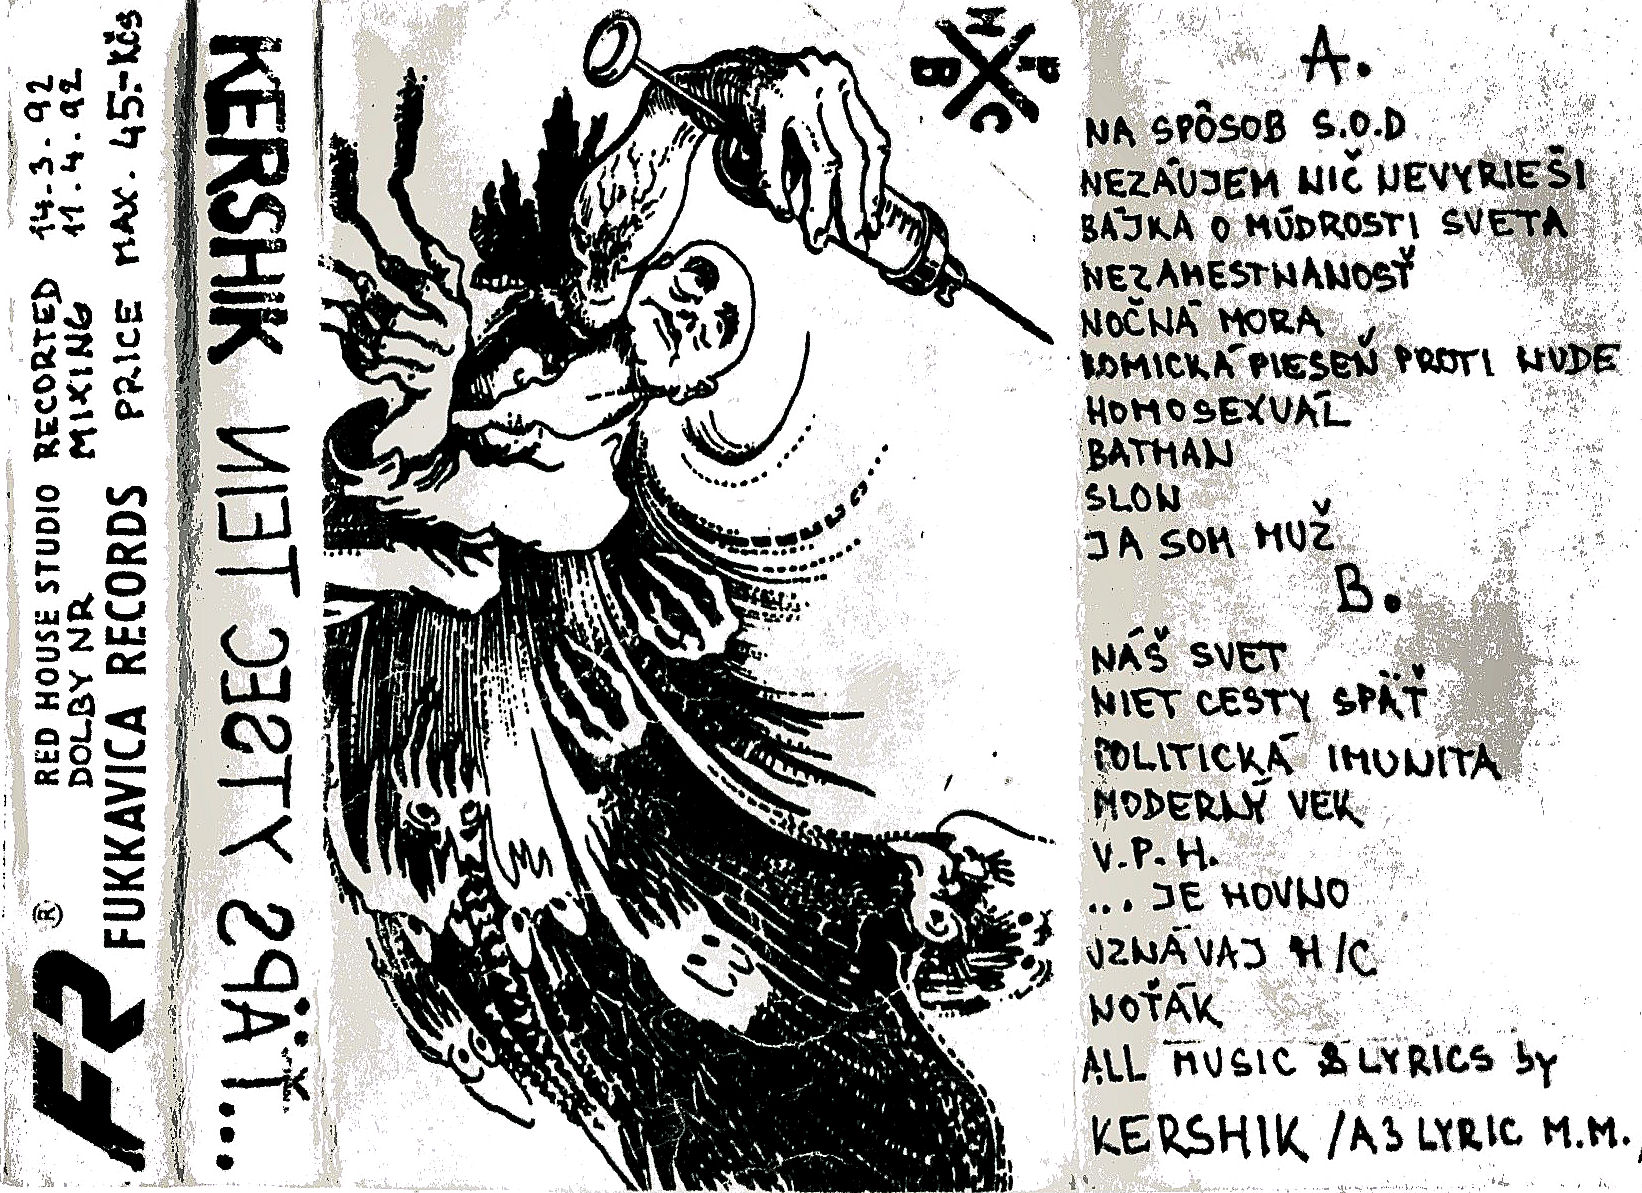 RED HOUSE STUDIO RECORTED 14.3.92
DOLBY NR MIXING 11.4.92
FUKKAVICA RECORDS PRICE MAX. 45.-Kčs
FR ®
KERSHIK NIET CESTY SPÄŤ...
H P B C
A.
NA SPÔSOB S.O.D
NEZÁUJEM NIČ NEVYRIEŠI
BÁJKA O MÚDROSTI SVETA
NEZAMESTNANOSŤ
NOČNÁ MORA
KOMICKÁ PIESEŇ PROTI NUDE
HOMOSEXUÁL
BATMAN
SLON
JA SOM MUŽ
B.
NÁŠ SVET
NIET CESTY SPÄŤ
POLITICKÁ IMUNITA
MODERNÝ VEK
V.P.H.
... JE HOVNO
UZNÁVAJ H/C
NOŤÁK
ALL MUSIC & LYRICS by
KERSHIK /A3 LYRIC M.M./